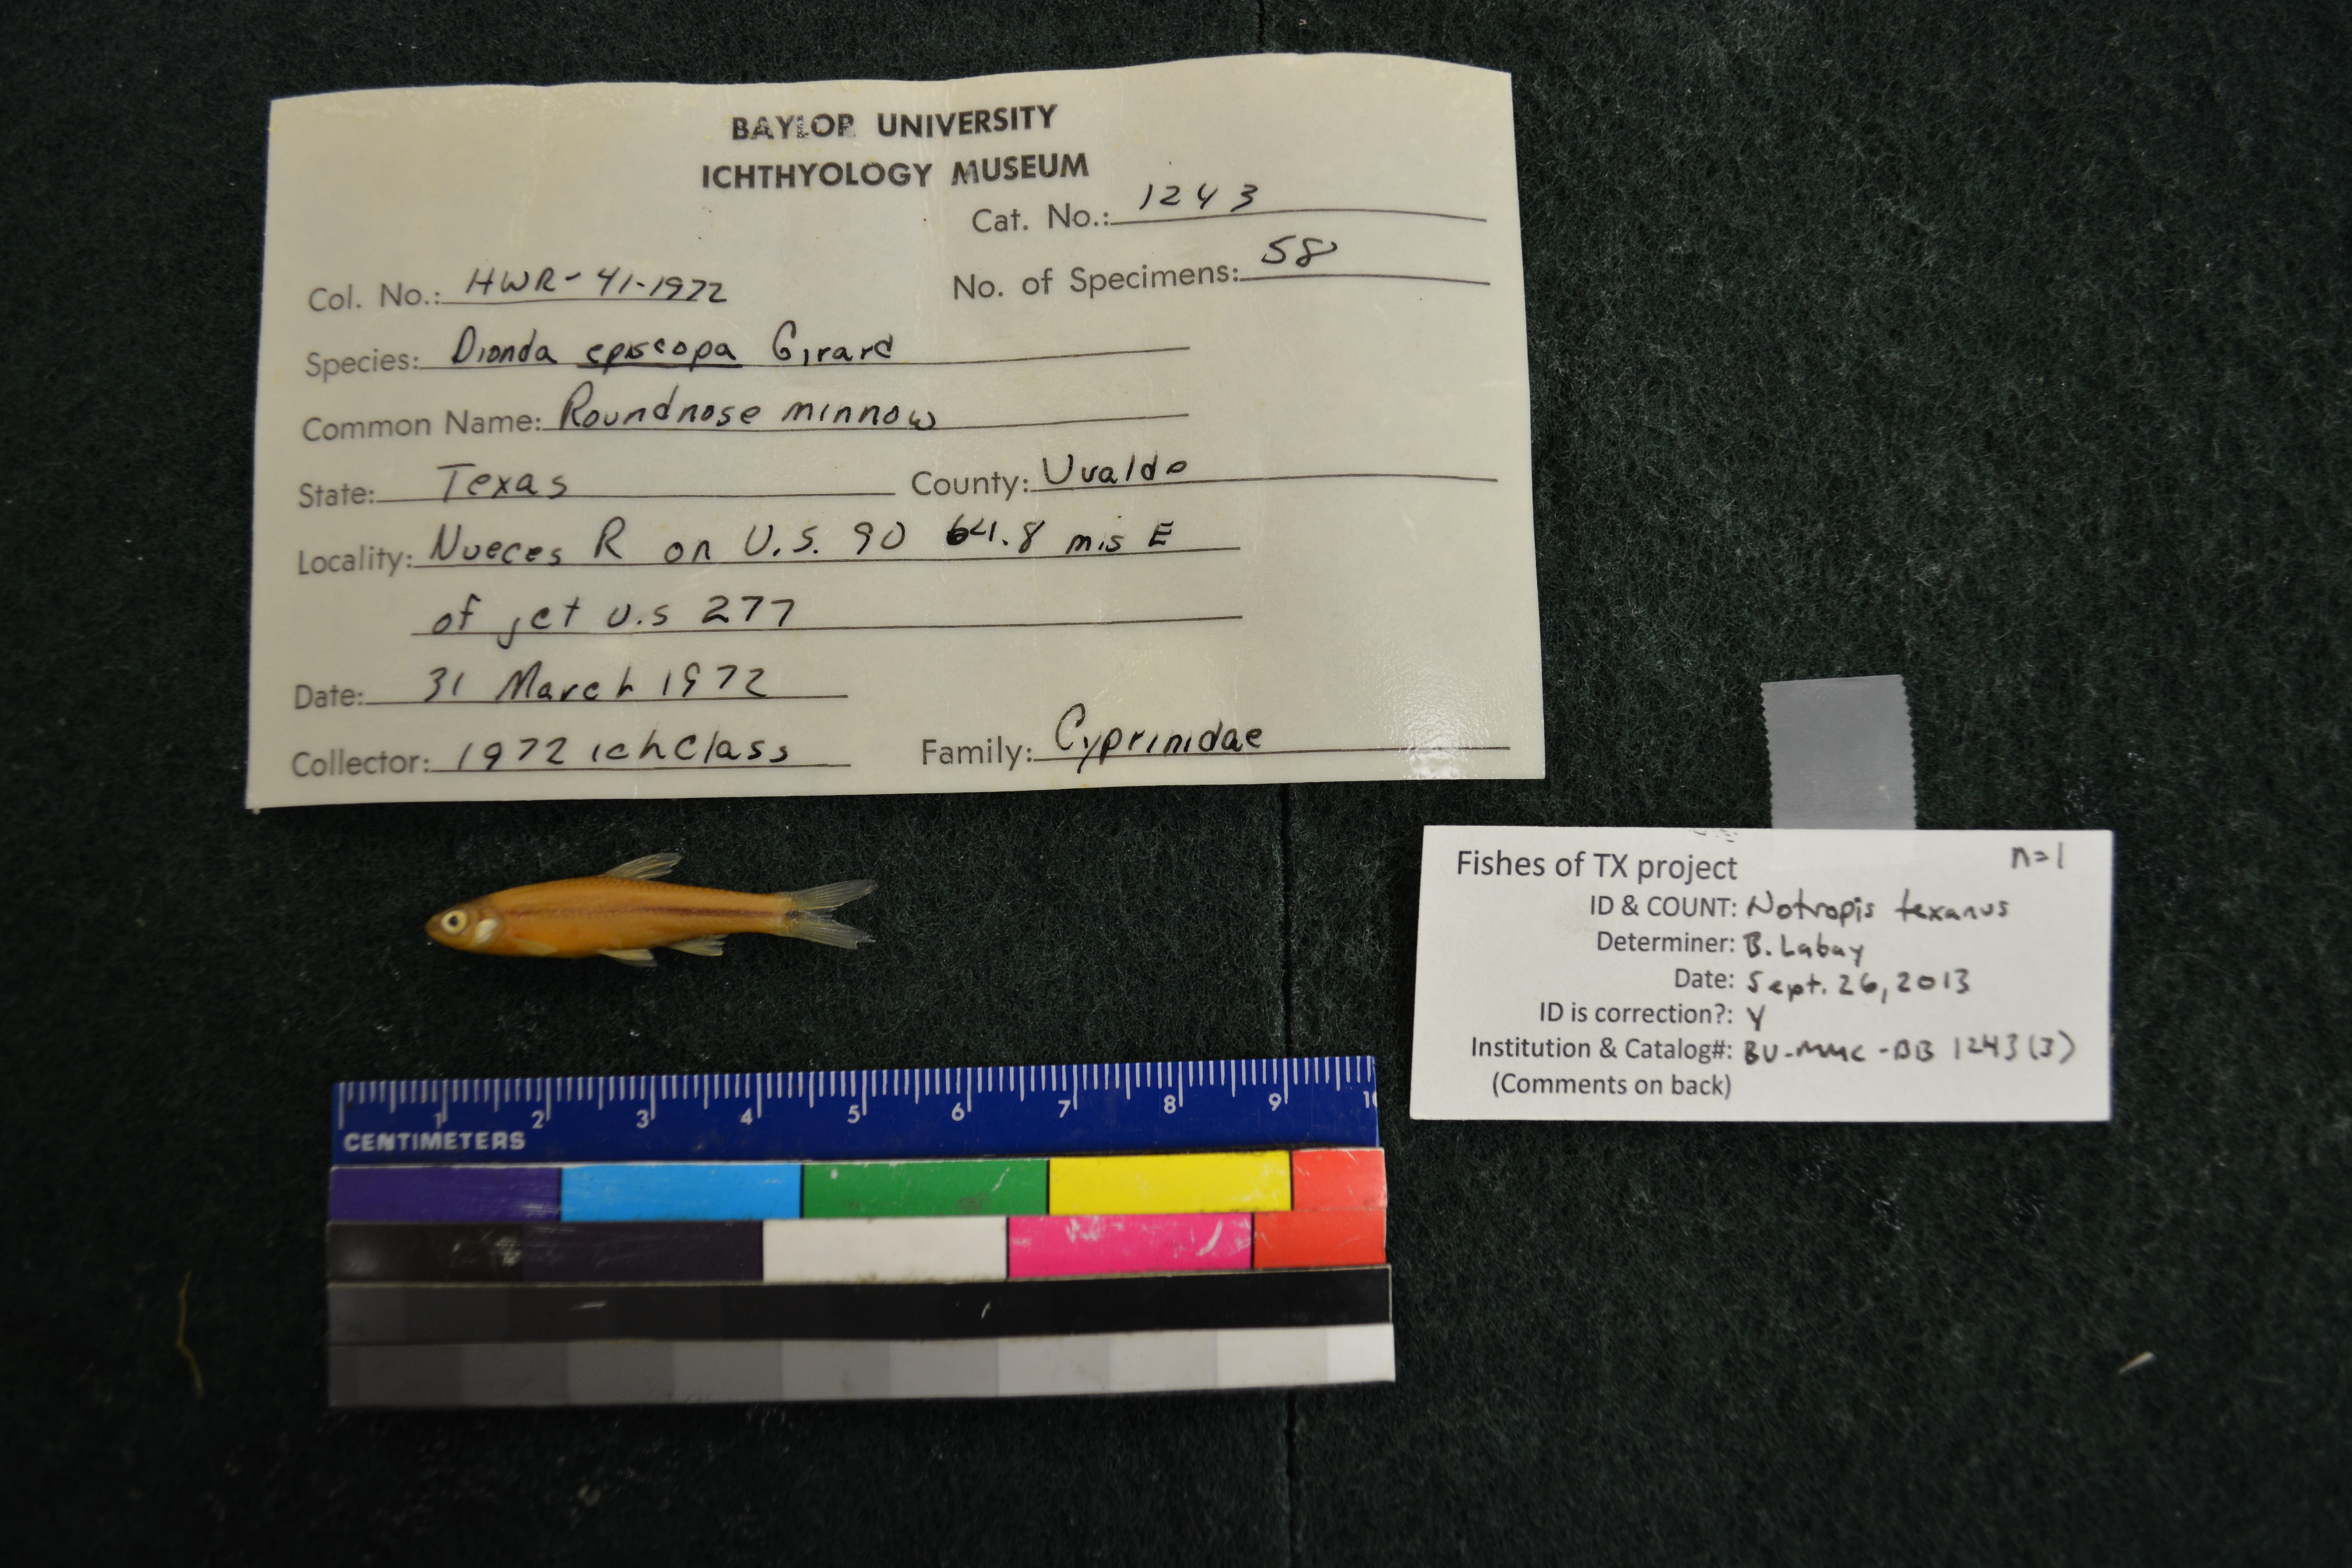 BAYLOR UNIVERSITY
ICHTHYOLOGY MUSEUM
Cat. No.: 1243
Col. No.: HWR-41-1972 No. of Specimens: 58
Species: Dionda episcopa Girard
Common Name: Roundnose minnow
State: Texas County: Uvalde
Locality: Nueces R on U.S. 90 64.8 mis E
of jct U.S 277
Date: 31 March 1972
Collector: 1972 ich class Family: Cyprinidae
Fishes of TX project n=1
ID & COUNT: Notropis texanus
Determiner: B. Labay
Date: Sept. 26, 2013
ID is correction?: Y
Institution & Catalog#: BU-MMC-BB 1243(3)
(Comments on back)
1 2 3 4 5 6 7 8 9 10
CENTIMETERS